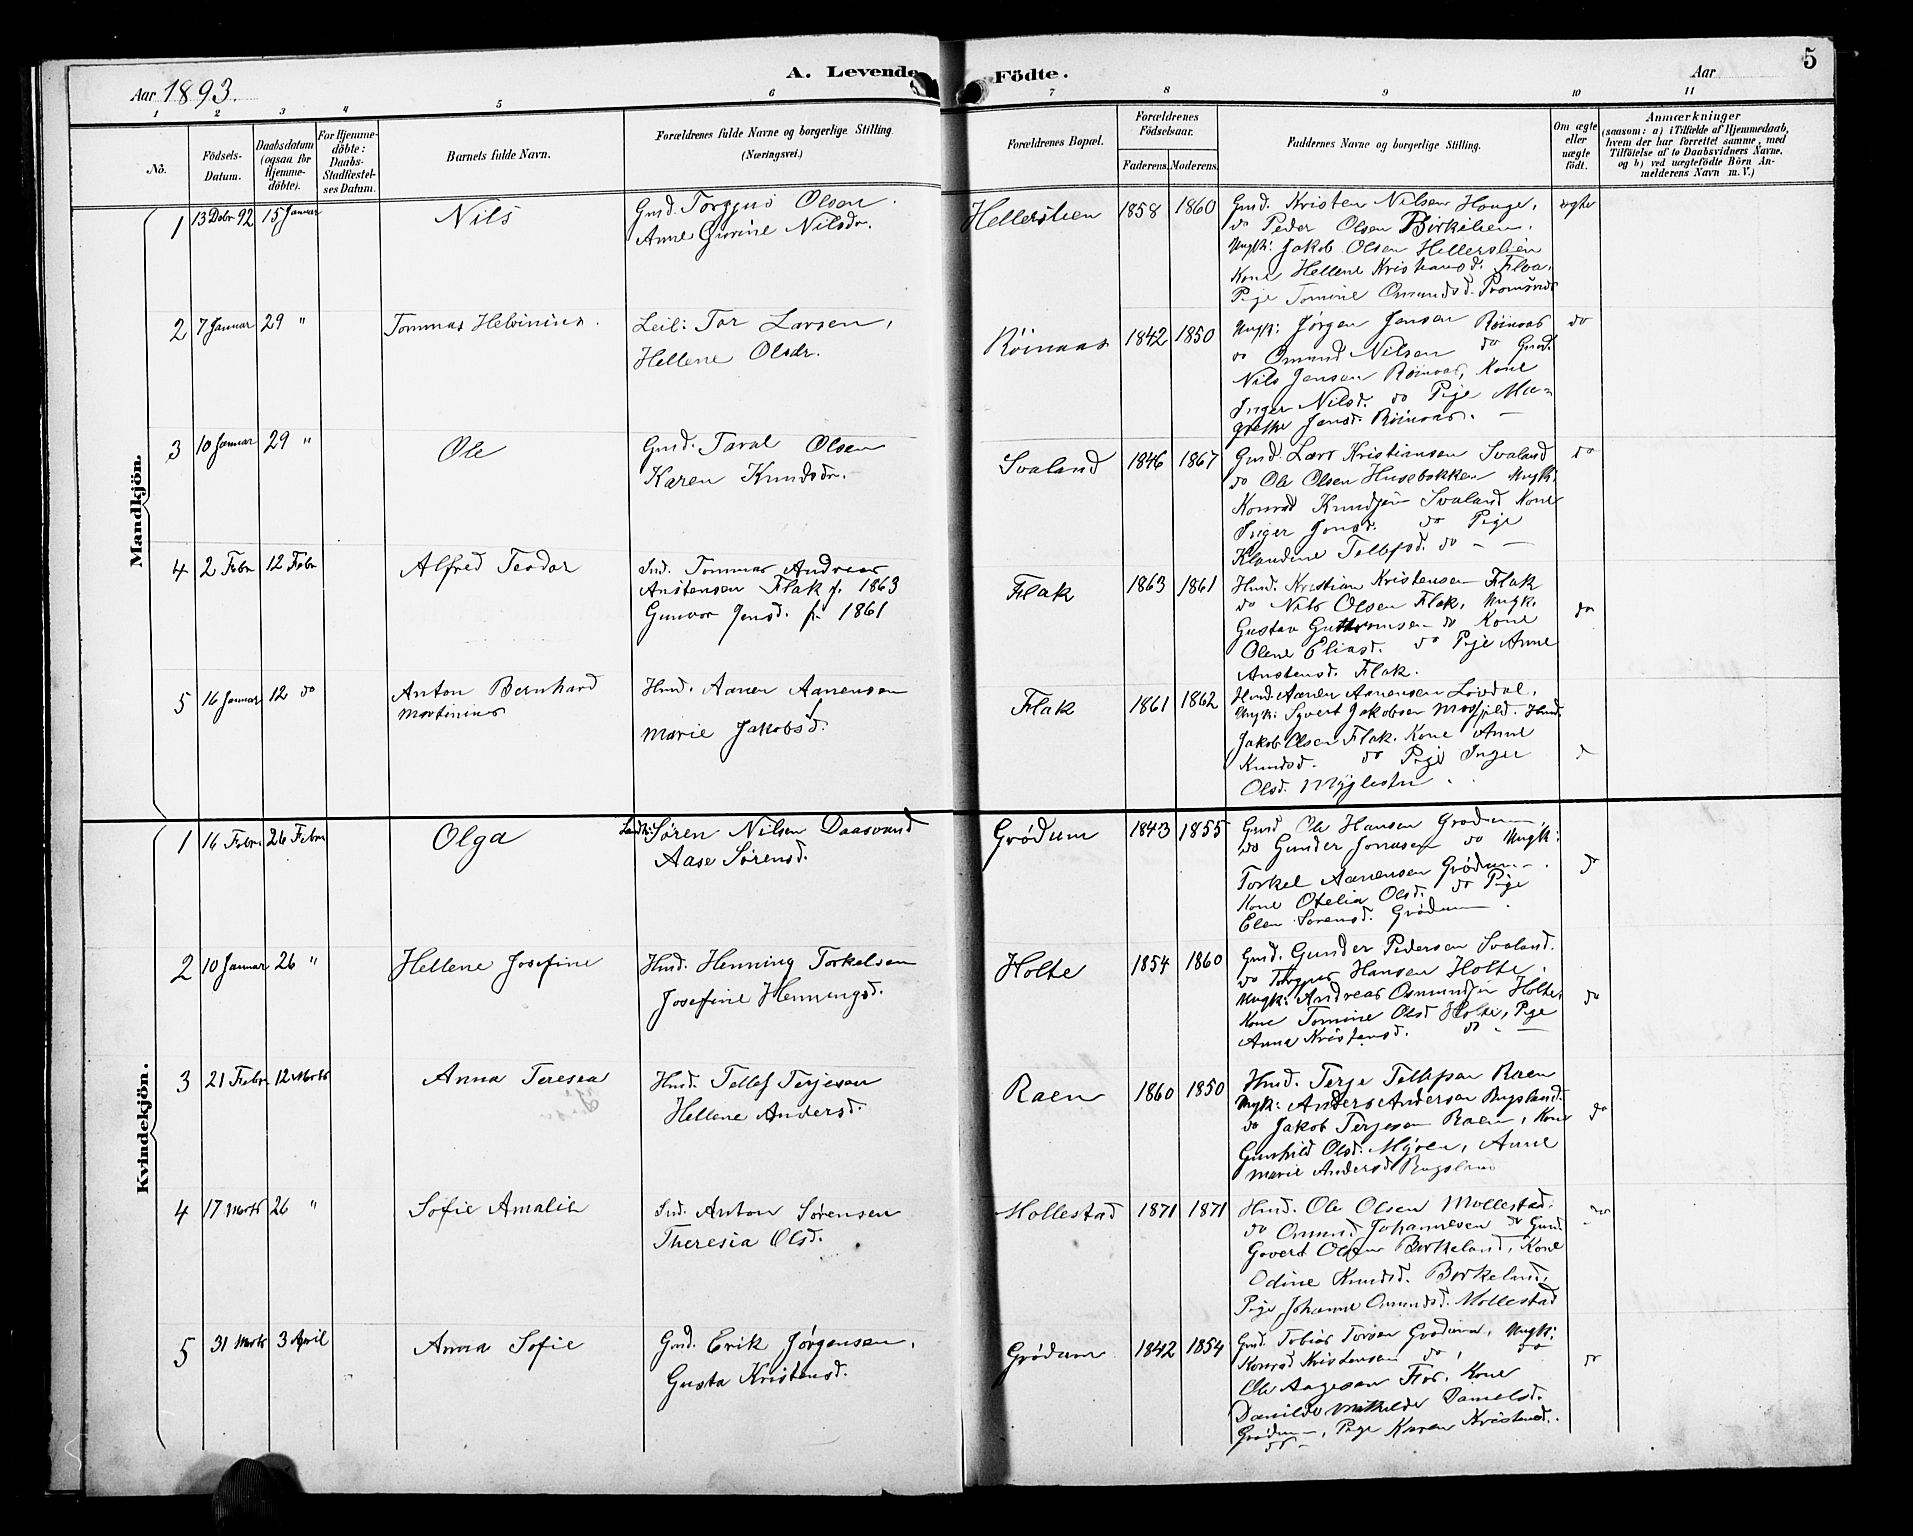 5
A. Levende Födte.
Aar 1893.
Aar
1 2 3 4 5 6 7 8 9 10 11
No.
Födsels-Datum.
Daabsdatum (ogsaa for Hjemme-döbte).
For Hjemme-döbte: Daabs-Stadfæstel-ses Datum.
Barnets fulde Navn.
Forældrenes fulde Navne og borgerlige Stilling.
(Næringsvei.)
Forældrenes Bopæl.
Forældrenes Födselsaar.
Faderens. Moderens.
Faddernes Navne og borgerlige Stilling.
Om ægte eller uægte födt.
Anmærkninger
(saasom: a) i Tilfælde af Hjemmedaab,
hvem der har forrettet samme, med
Tilföielse af to Daabsvidners Navne.
og b) ved uægtefödte Börn An-
melderens Navn m. V.)
Mandkjön.
1 13 Debr 92 15 Januar Nils
Gmd. Torgjus Olsen.
Anne Gurine Nilsdr.
Hellerslien 1858 1860
Gmd. Kristen Nilsen Hauge,
do Peder Olsen Birkelien.
Ungk: Jakob Olsen Hellerslien
Kone Hellene Kristiansd. Flaa,
Pige Tomine Omundsd.
ægte
2 7 Januar 29 " Tommas Helvinius.
Leil: Tor Larsen,
Hellene Olsdr.
Röinaas 1842 1850
Ungk: Jörgen Jensen Röinaas
do Omund Nilsen do Gmd.
Nils Jensen Röinaas, Kone
Inger Nilsd. do Pige Ma-
grethe Jensd. Röinaas. —
do
3 10 Januar 29 " Ole
Gmd. Taral Olsen
Karen Knudsdr.
Svaland 1846 1867
Gmd. Lars Kristiansen Svaland
do Ole Olsen Husebakken Ungk:
Konrad Knudsen Svaland Kone
Inger Jonsd. do Pige
Klaudine Tellefsd. do — —
do
4 2 Febr 12 Febr Alfred Teodor
Ind. Tommas Andreas
Anstensen Flak f. 1863
Gunvor Jensd. f. 1861
Flak 1863 1861
Hmd. Kristian Kristensen Flak
do Nils Olsen Flak, Ungk.
Gustav Guttormsen do Kone
Olene Eliasd. do Pige Anne
Anstensd. Flak.
do
5 16 Januar 12 do Anton Bernhard
Martinius
Hmd. Aanen Aanensen
Marie Jakobsd.
Flak 1861 1862
Hmd. Aanen Aanensen
Ungk: Syvert Jakobsen Mosfjeld. Hmd.
Jakob Olsen Flak. Kone Anne
Knudsd. do Pige Inger
Olsd. Myglestu
Kvindekjön.
1 16 Febr 26 Febr Olga
Sören Nilsen Daasvand
Aase Sörensd.
Grödum 1843 1855
Gmd. Ole Hansen Grödum,
do Gunder Jonasen do Ungk:
Torkel Aanensen Grödum —.
Kone Otelia Olsd. do Pige
Elen Sörensd. Grödum.
do
2 10 Januar 26 " Hellene Josefine
Hmd. Henning Torkelsen
Josefine Henningsd.
Holte 1854 1860
Gmd. Gunder Pedersen Svaland.
do Torgjus Hansen Holte.
Ungk: Andreas Osmundsen Holte,
Kone Tomine Olsd Holte, Pige
Anna Kristensd. do — —
do
3 21 Febr 12 Marts Anna Teresea
Hmd. Tellef Terjesen
Hellene Andersd.
Raen 1860 1850
Hmd. Terje Tellefsen Raen
Ungk: Anders Andersen Rugsland.
do Jakob Terjesen Raen, Kone
Gunhild Olsd. Myren, Anne
Marie Andersd Rugsland
do
4 17 Marts 26 " Sofie Amalie
Ind. Anton Sörensen
Theresia Olsd.
Mollestad 1871 1871
Hmd. Ole Olsen Mollestad.
do Omund Johannesen do Gmd.
Govert Olsen Birkeland, Kone
Odine Knudsd. Birkeland,
Pige Johanne Omundsd. Mollestad
do
5 31 Marts 3 April Anna Sofie
Gmd. Erik Jörgensen,
Gusta Kristensd.
Grödum 1842 1854
Gmd. Tobias Torsen Grödum, Ungk:
Konrad Kristensen do, do
Ole Aagesen Flaa, Kone
Mathilde Danielsd.
Grödum —, Pige Karen Kristensd.
do —
do